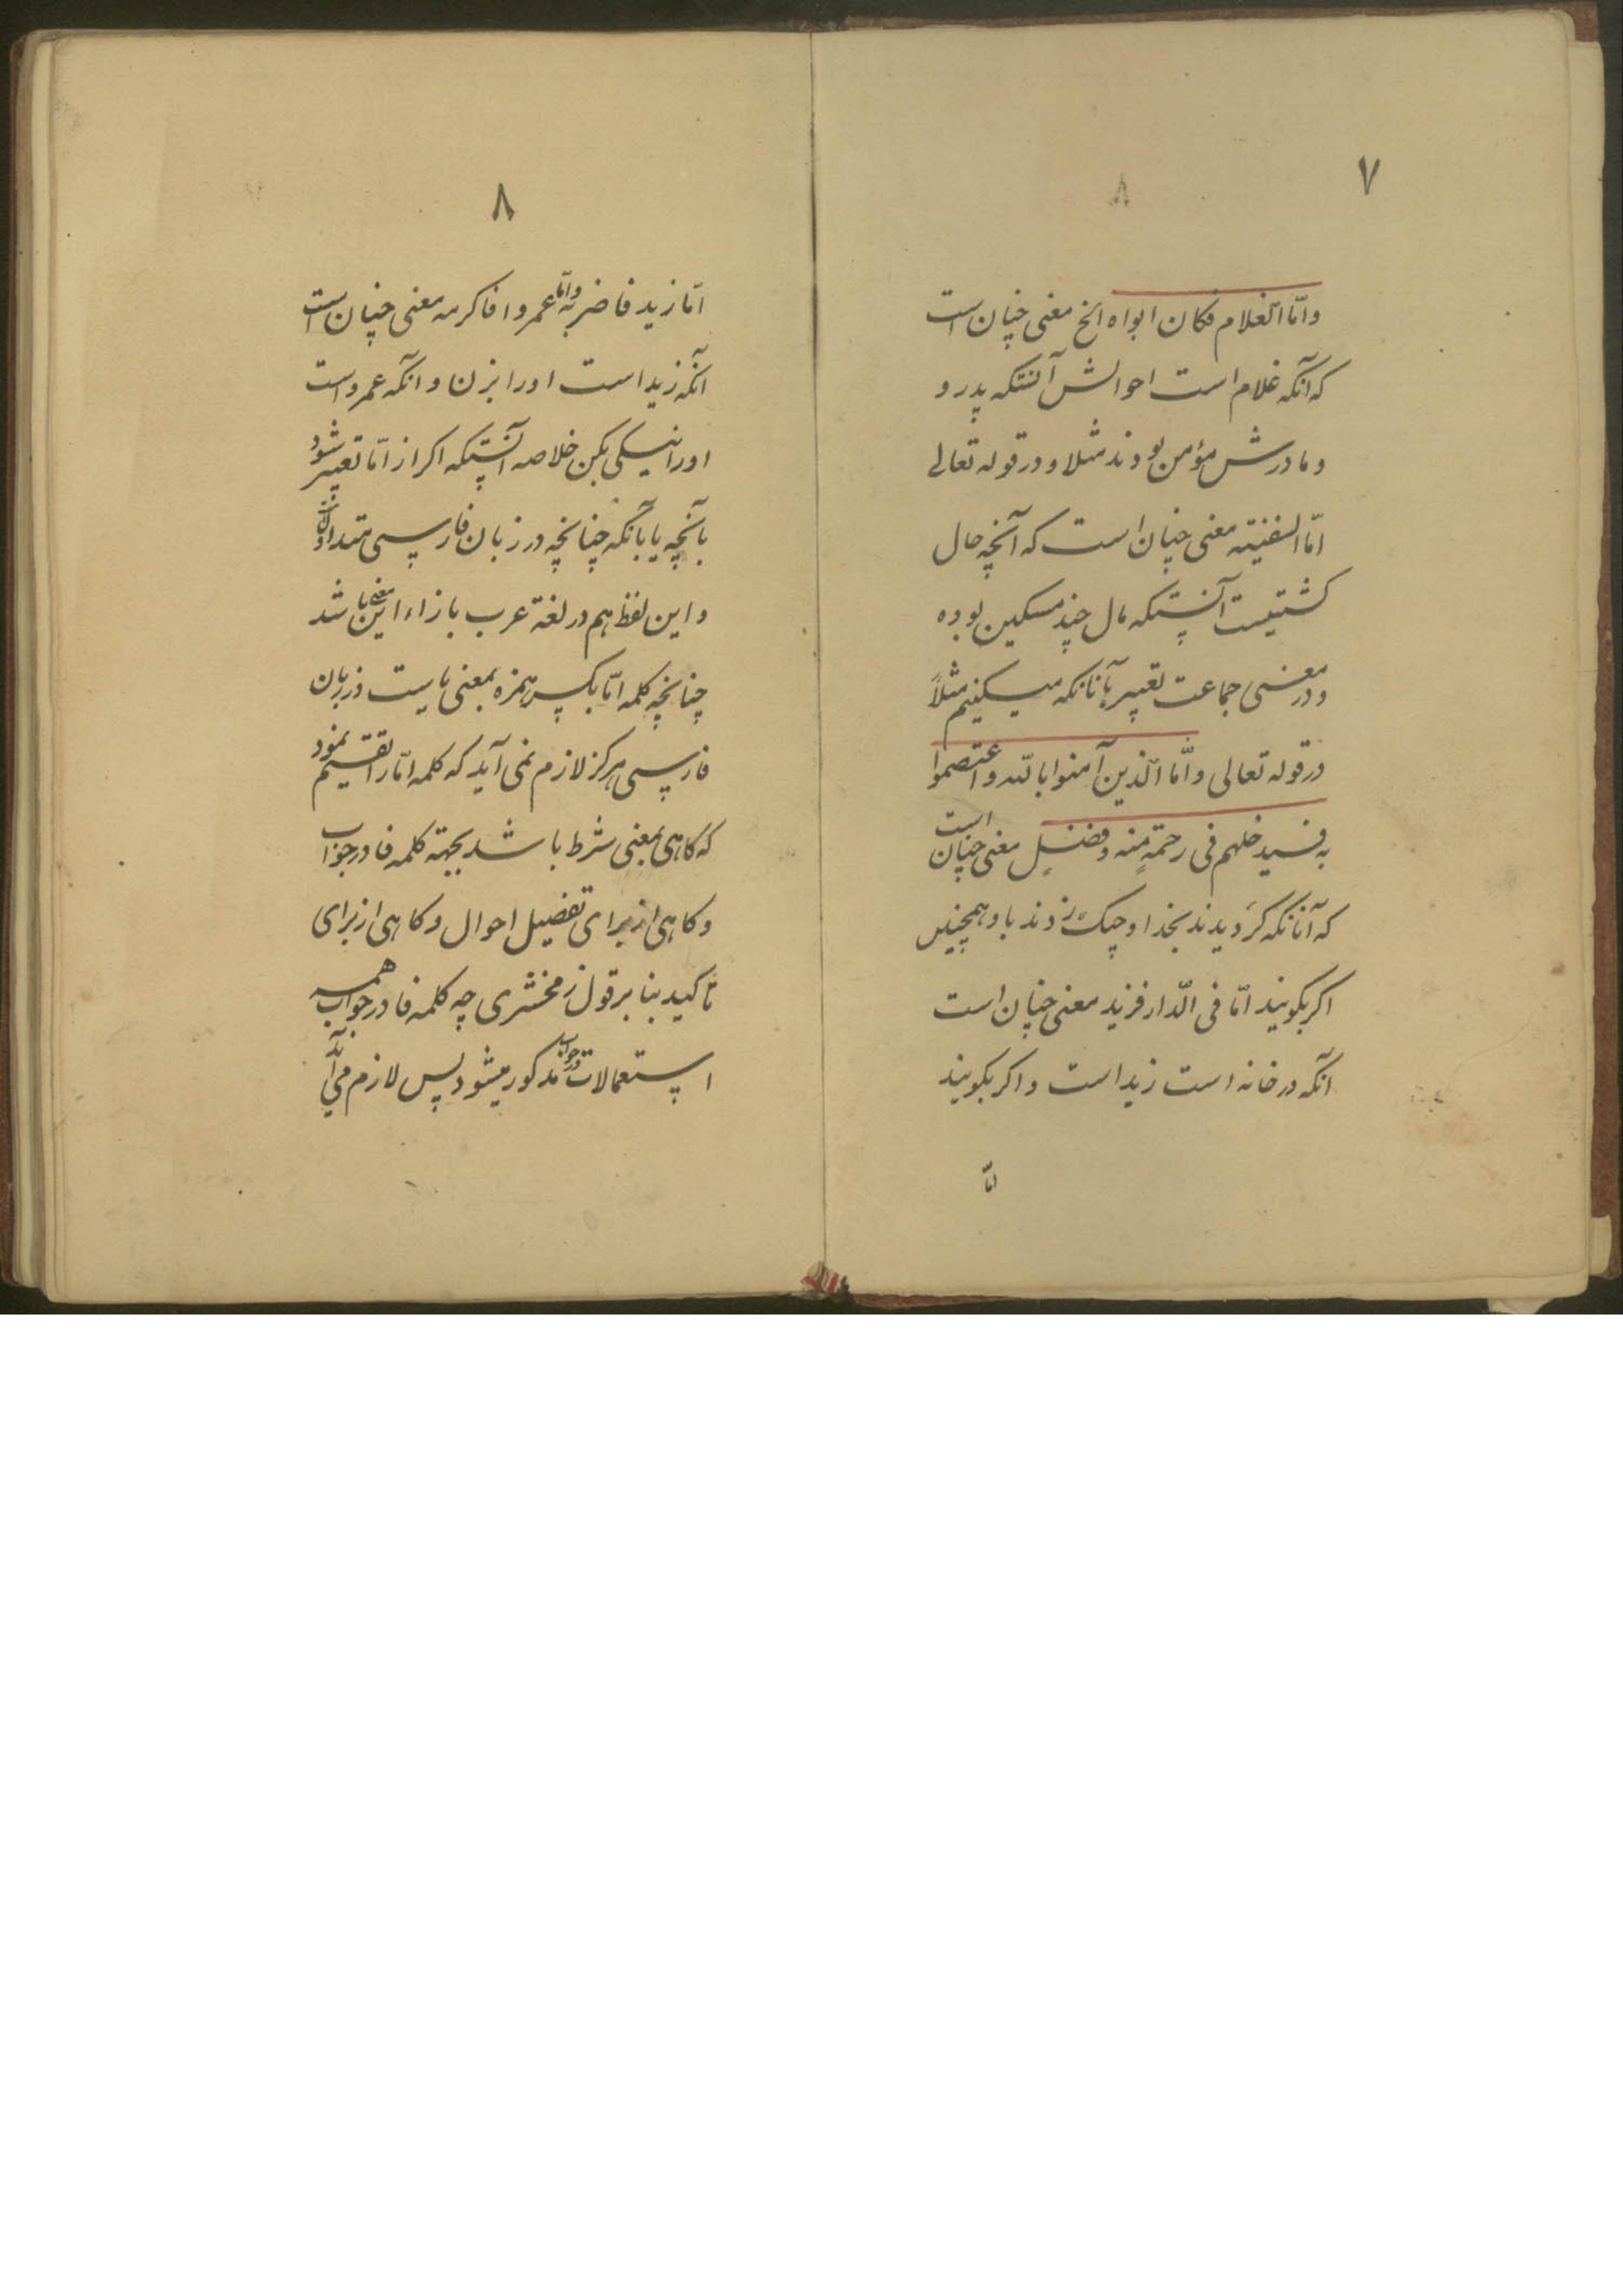 ۷
وامّا الغلام فكان ابواه الخ معنی چنان است
که آنکه غلام است احوالش آنستکه پدر و
و مادرش مؤمن بودند مثلا و در قوله تعالی
امّا السفینته معنی چنان است که آنچه حال
کشتیست آنستکه مال چند مسکین بوده
و در معنی جماعت تعبیر بآنانکه میکنیم مثلاً
در قوله تعالی و امّا الذین آمنوا بالله و اعتصموا
به فسیدخلهم فی رحمةٍ منه و فضلٍ معنی چنان است
که آنانکه کرویدند بخدا و چنک زدند باو همچنین
اکر بکویند امّا فی الدّار فزید معنی چنان است
آنکه در خانه است زید است و اکر بکویند
امّا
۸
امّا زید فاضربه وامّا عمروا فاکرمه معنی چنان است
آنکه زید است او را بزن و آنکه عمرو است
او را نیکی بکن خلاصه آنستکه اکر از امّا تعبیر شود
بآنچه یا بآنکه چنانچه در زبان فارسی متداول
و این لفظ هم در لغة عرب بازاء این معنی باشد
چنانچه کلمه امّا بکسر همزه بمعنی یا است در زبان
فارسی هرکز لازم نمی آید که کلمه امّا را تقسیم نمود
که کاهی بمعنی شرط باشد بجهته کلمه فا در جواب
و کاهی از برای تفضیل احوال و کاهی از برای
تاکید بنا بر قول زمخشری چه کلمه فا در جواب همه
استعمالات در جواب مذکور میشود پس لازم می آید